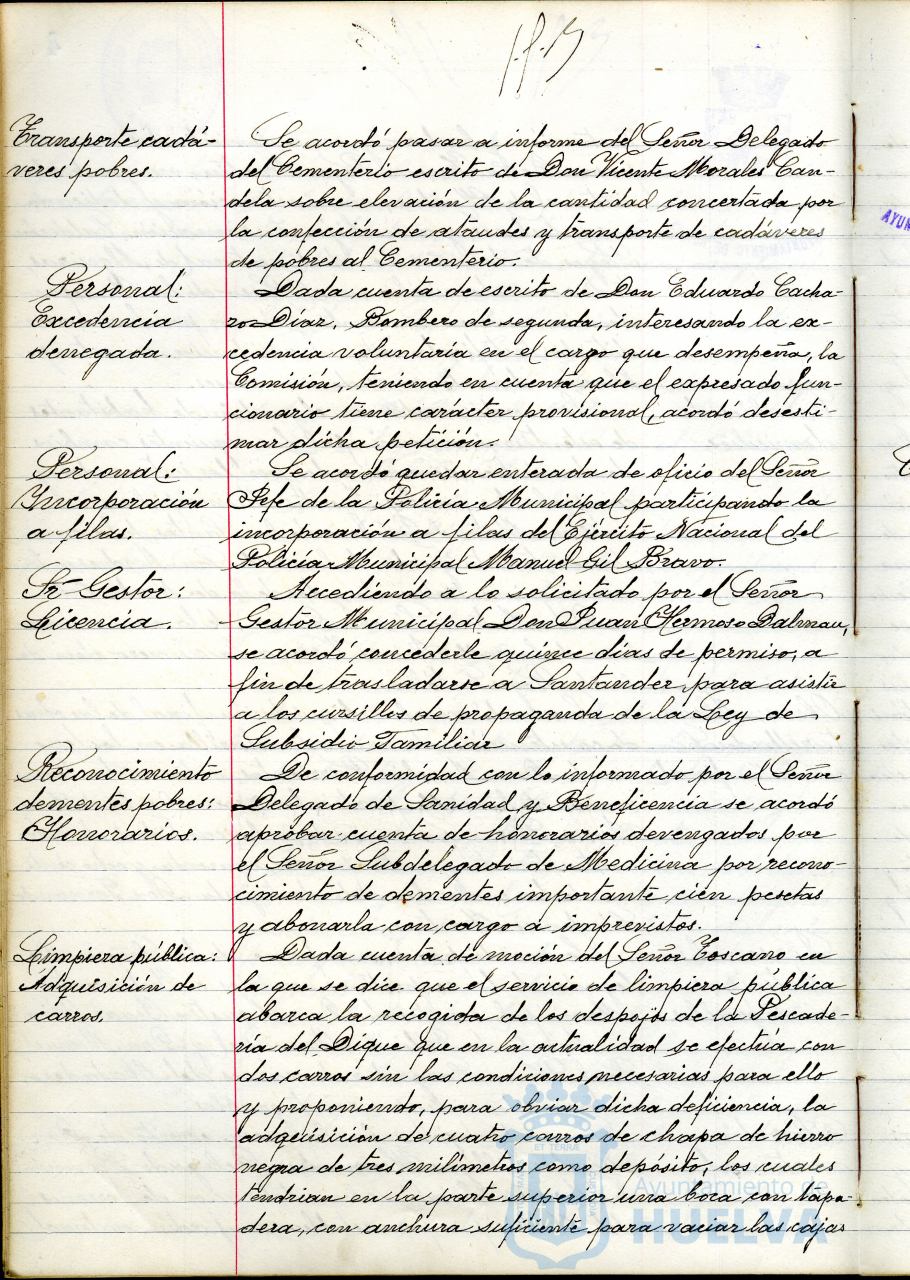 Transporte cadá-
veres pobres.
Se acordó pasar a informe del Señor Delegado
del Cementerio escrito de Don Vicente Morales Can-
dela sobre elevación de la cantidad concertada por
la confección de ataudes y transporte de cadáveres
de pobres al Cementerio.
Personal:
Excedencia
denegada.
Dada cuenta de escrito de Don Eduardo Cacha-
ro Díaz, Bombero de segunda, interesando la ex-
cedencia voluntaria en el cargo que desempeña, la
Comisión, teniendo en cuenta que el expresado fun-
cionario tiene carácter provisional, acordó desesti-
mar dicha petición.
Personal:
Incorporación
a filas.
Se acordó quedar enterada de oficio del Señor
Jefe de la Policía Municipal participando la
incorporación a filas del Ejército Nacional del
Policía Municipal Manuel Gil Bravo.
Sr. Gestor:
Licencia.
Accediendo a lo solicitado por el Señor
Gestor Municipal Don Juan Hermoso Dalmau,
se acordó concederle quince días de permiso, a
fin de trasladarse a Santander para asistir
a los cursillos de propaganda de la Ley de
Subsidio Familiar
Reconocimiento
dementes pobres:
Honorarios.
De conformidad con lo informado por el Señor
Delegado de Sanidad y Beneficencia se acordó
aprobar cuenta de honorarios devengados por
el Señor Subdelegado de Medicina por recono-
cimiento de dementes importante cien pesetas
y abonarla con cargo a imprevistos.
Limpiera pública:
Adquisición de
carros.
Dada cuenta de moción del Señor Toscano en
la que se dice que el servicio de limpiera pública
abarca la recogida de los despojos de la Pescade-
ría del Dique que en la actualidad se efectúa con
dos carros sin las condiciones necesarias para ello
y proponiendo, para obviar dicha deficiencia, la
adquisición de cuatro carros de chapa de hierro
negra de tres milímetros como depósito, los cuales
tendrian en la parte superior una boca con tapa-
dera, con anchura suficiente para vaciar las cajas
Ayuntamiento de
HUELVA
AYUN